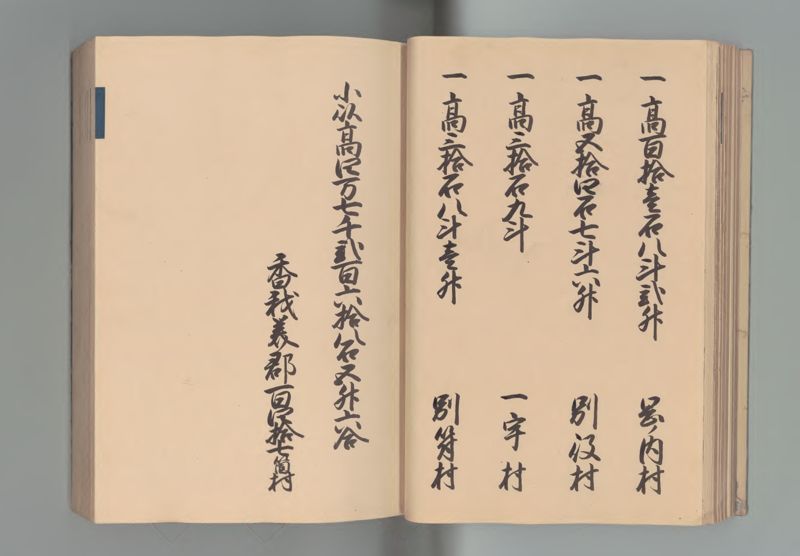 一 高百拾壱石八斗弐升 冨ノ内村
一 高五拾四石七斗六升 別役村
一 高三拾石九斗 一宇村
一 高三拾石八斗壱升 別府村
小以高四万七千弐百六拾八石五升六合
香我美郡百四拾七箇村